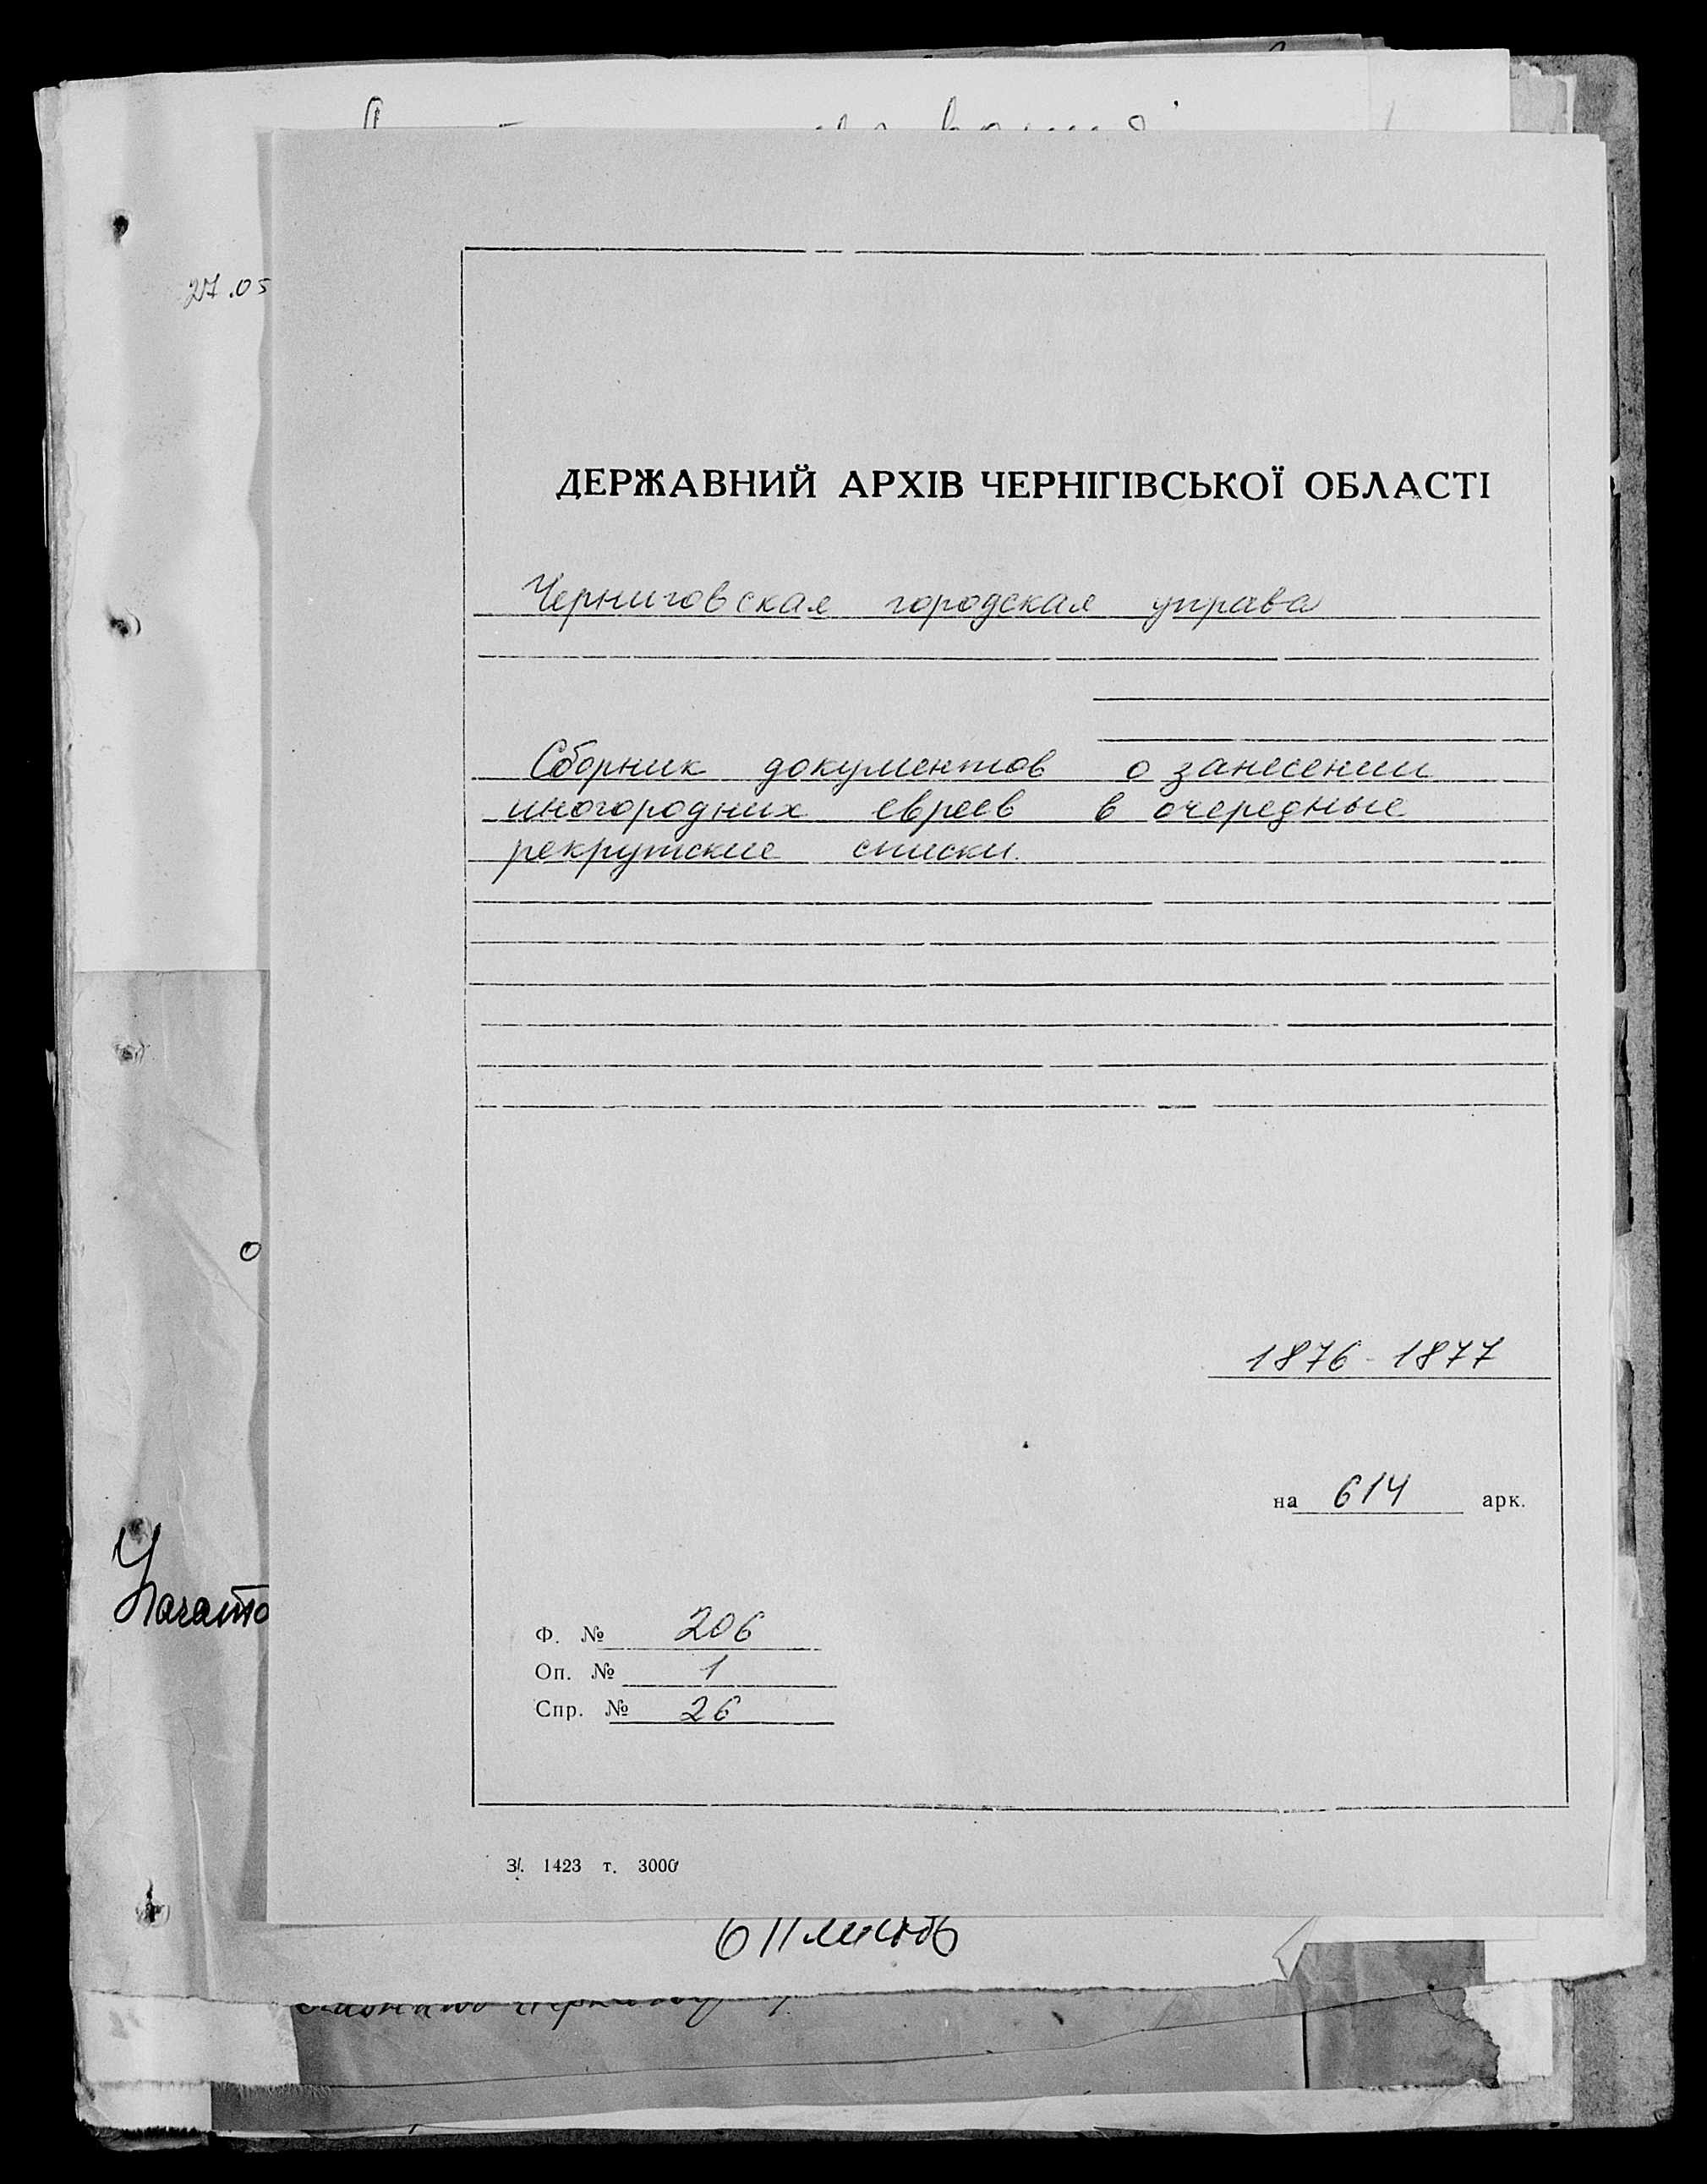 27.05
ДЕРЖАВНИЙ АРХІВ ЧЕРНІГІВСЬКОЇ ОБЛАСТІ
Черниговская городская управа
Сборник документов о занесении
иногородних евреев в очередные
рекрутские списки.
1876 - 1877
на 614 арк.
Ф. № 206
Оп. № 1
Спр. № 26
З/. 1423 т. 3000